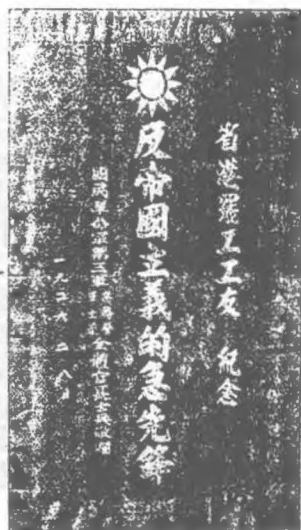 省港罷工工友 紀念
反帝國主義的急先鋒
國民革命軍第二 全體官長士兵敬贈
一九二六 二 八日